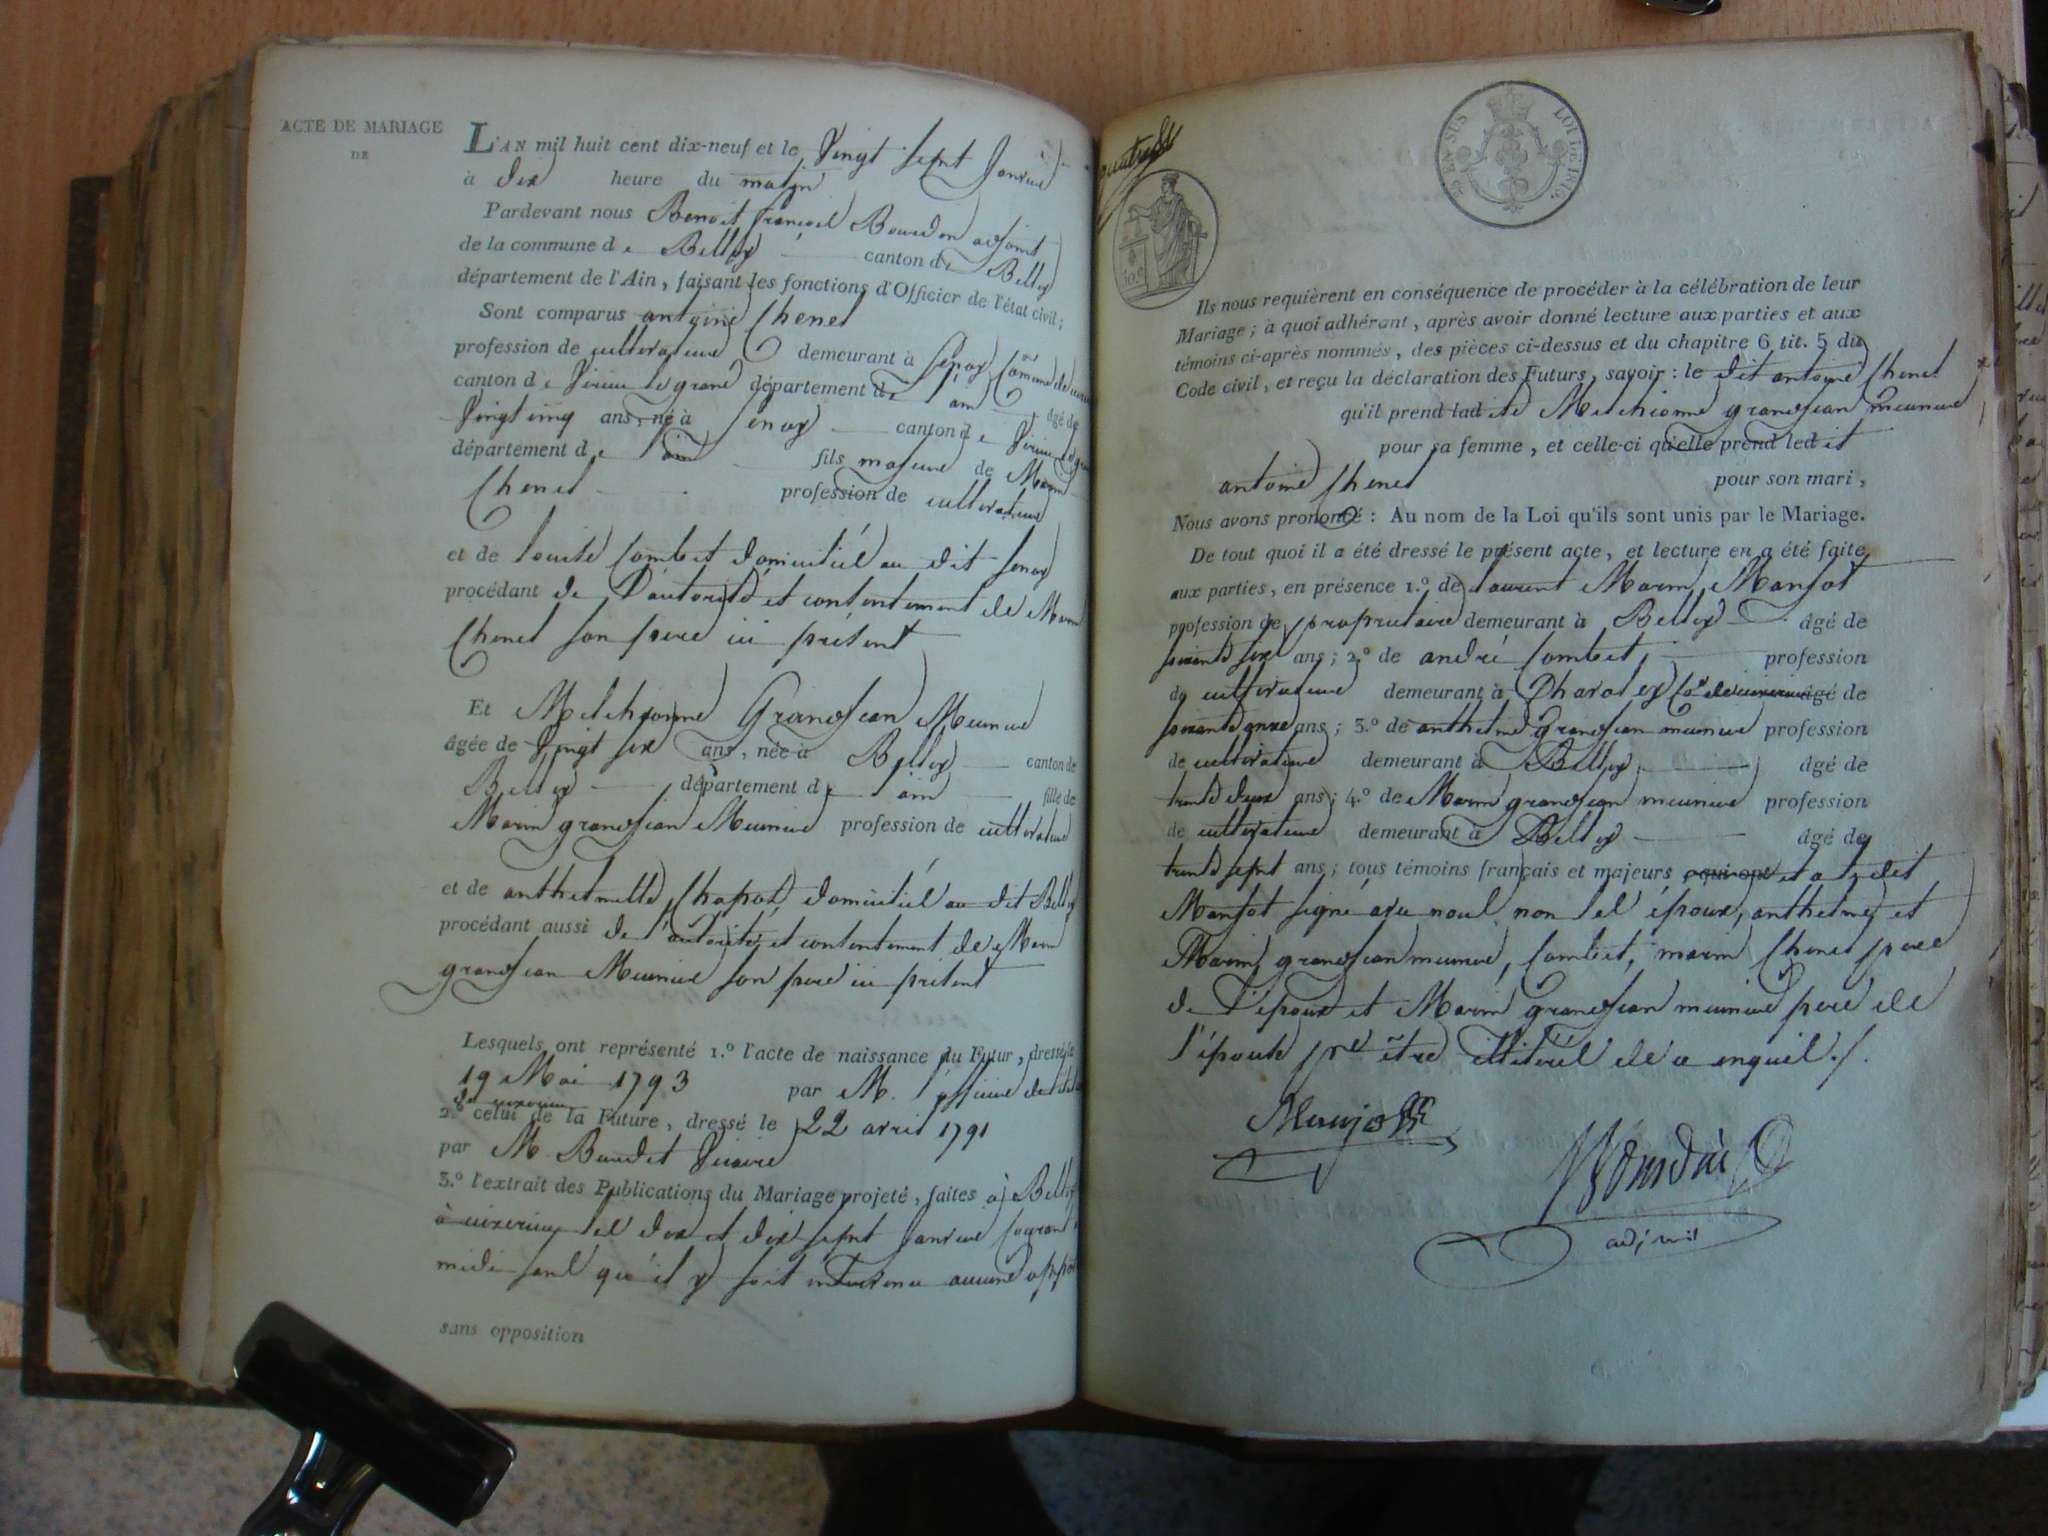 ACTE DE MARIAGE
DE
L'AN mil huit cent dix-neuf et le Vingt sept Janvier
à dix heure du matin
Pardevant nous Benoit françois Bourdin adjoint
de la commune de Belley canton de Belley
département de l'Ain, faisant les fonctions d'Officier de l'état civil;
Sont comparus antoine Chenet
profession de cultivateur demeurant à
canton de Virieu le grand département de l'ain âgé de
Vingt cinq ans, né à canton de Virieu le grand
département de l'ain fils majeur de Marin
Chenet profession de cultivateur
et de Louise Combet domiciliés au dit
procédant de L'autorité et contentement de Marin
Chenet son pere ici présent
Et Melchionne Grandjean Meunier
âgée de Vingt six ans, née à Belley canton de
Belley département de l'ain fille de
Marin grandjean Meunier profession de cultivateur
et de anthelmette Chapot domiciliés au dit Belley
procédant aussi de l'autorité et contentement de Marin
grandjean Meunier son pere ici présent
Lesquels ont représenté 1.º l'acte de naissance du Futur, dressé le
19 Mai 1793 par M. l'officier de
2.º celui de la Future, dressé le 22 avril 1791
par M. Baudet Vicaire
3.º l'extrait des Publications du Mariage projeté, faites à Belley
les dix et dix sept Janvier
midi sans qu'il y soit intervenu aucune
sans opposition
LOI DE 1816
10.c
Ils nous requièrent en conséquence de procéder à la célébration de leur
Mariage; à quoi adhérant, après avoir donné lecture aux parties et aux
témoins ci-après nommés, des pièces ci-dessus et du chapitre 6 tit. 5 du
Code civil, et reçu la déclaration des Futurs, savoir: le dit antoine Chenet
qu'il prend ladite Melchionne grandjean meunier
pour sa femme, et celle-ci qu'elle prend ledit
antoine Chenet pour son mari,
Nous avons prononcé: Au nom de la Loi qu'ils sont unis par le Mariage.
De tout quoi il a été dressé le présent acte, et lecture en a été faite
aux parties, en présence 1.º de Laurent Marin Manjot
profession de proprietaire demeurant à Belley âgé de
soixante six ans; 2.º de andré Combet, profession
de cultivateur demeurant à âgé de
soixante onze ans; 3.º de anthelme grandjean meunier profession
de cultivateur demeurant à Belley âgé de
trente deux ans; 4.º de Marin grandjean meunier profession
de cultivateur demeurant à Belley âgé de
trente sept ans; tous témoins français et majeurs et a ledit
Manjot signé avec nous, non les époux, anthelme et
Marin grandjean meunier, Combet, marin Chenet pere
de l'époux et Marin grandjean meunier pere de
l'épouse pr être illitérés de ce enquis.
Manjot
Bourdin
adjoint